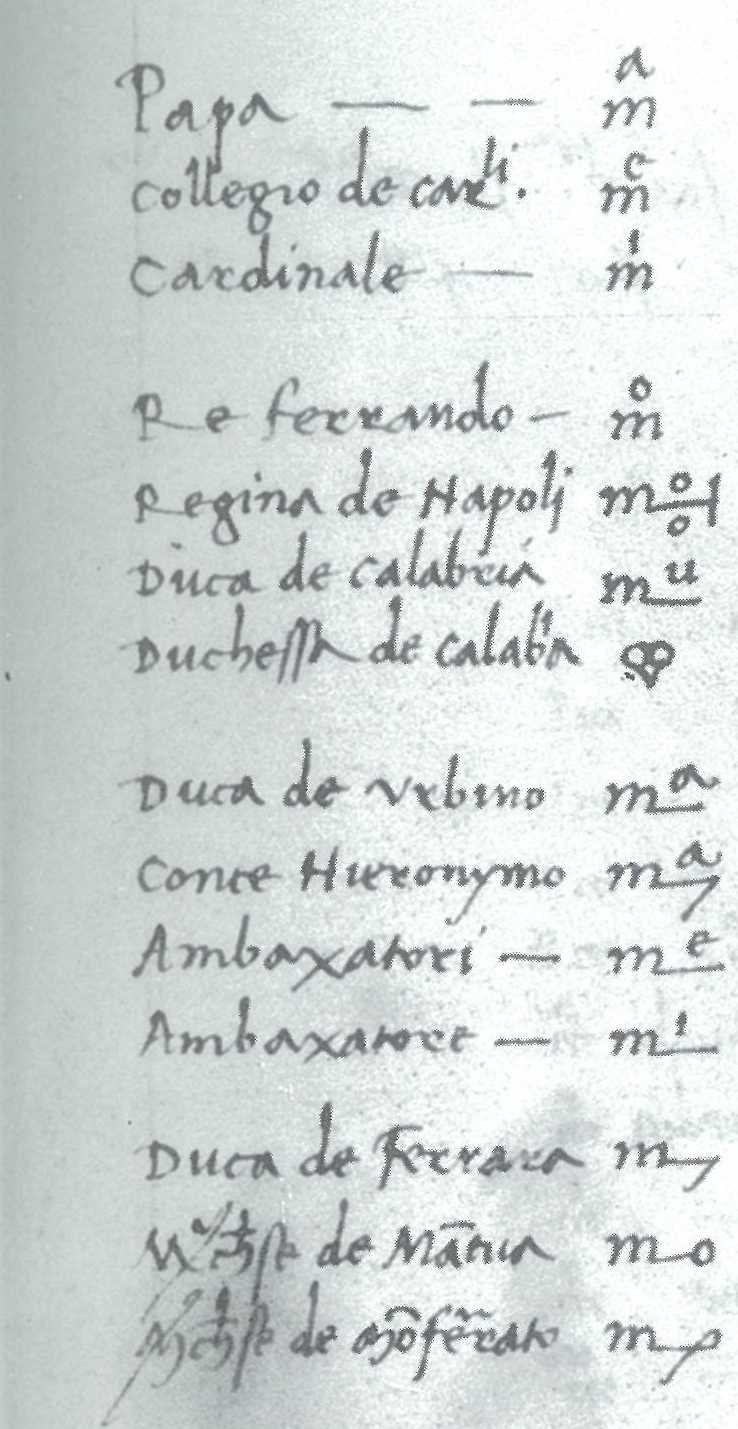 Papa — — mᵃ
Collegio de carˡⁱ. mᵉ
Cardinale — mⁱ
Re ferrando — mᵒ
Regina de Napoli m
Duca de Calabria mᵘ
Duchessa de Calabᵃ
Duca de Urbino mᵃ
Conte Hieronymo mᵃ
Ambaxatori — mᵉ
Ambaxatore — mⁱ
Duca de Ferrara m
de Mātua mo
de Mōferato m